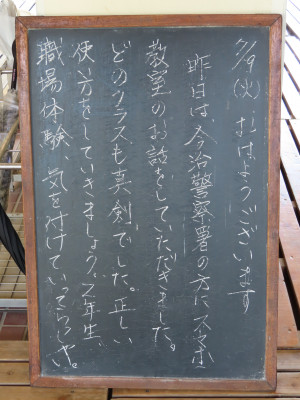 7/9(火) おはようございます
昨日は、今治警察署の方にスマホ
教室のお話をしていただきました。
どのクラスも真剣でした。正しい
使い方をしていきましょう。2年生、
職場体験、気を付けていってらっしゃい。